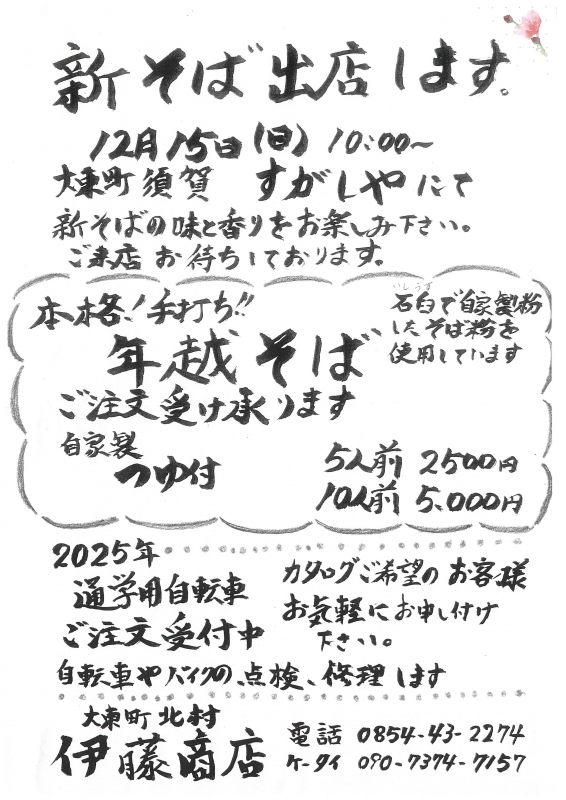 新そば出店します。
12月15日(日) 10:00〜
大東町須賀 すがしやにて
新そばの味と香りをお楽しみ下さい。
ご来店お待ちしております。
本格!手打ち!!
年越そば
ご注文受け承ります
いしうす
石臼で自家製粉
したそば粉を
使用しています
自家製
つゆ付
5人前 2500円
10人前 5.000円
2025年
通学用自転車
ご注文受付中
カタログご希望のお客様
お気軽にお申し付け
下さい。
自転車やバイクの、点検、修理します
大東町北村
伊藤商店
電話 0854-43-2274
ケータイ 090-7374-7157